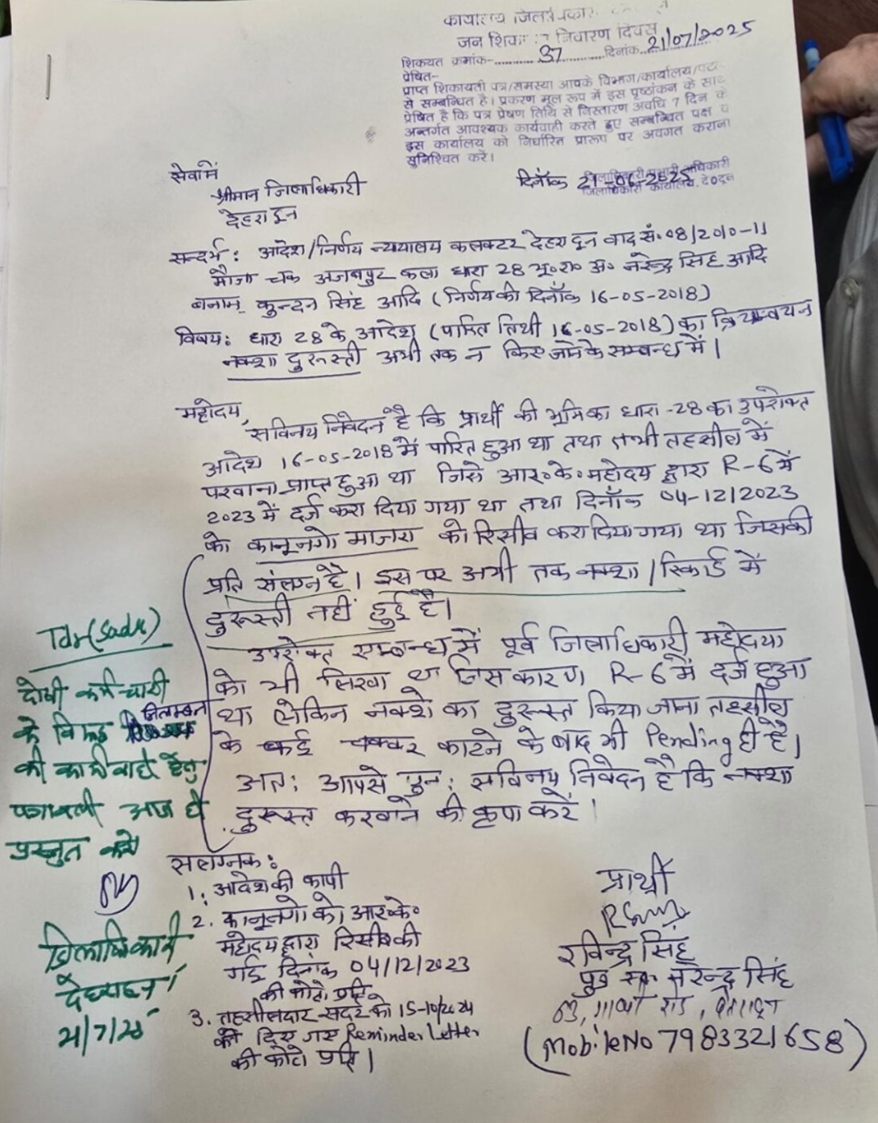 कार्यालय जिलाधिकारी
जन शिकायत निवारण दिवस
शिकायत क्रमांक- 37 दिनांक 21/07/2025
प्रेषित-
प्राप्त शिकायती पत्र/समस्या आपके विभाग/कार्यालय/पटल
से सम्बन्धित है। प्रकरण मूल रूप में इस पृष्ठांकन के साथ
प्रेषित है कि पत्र प्रेषण तिथि से निस्तारण अवधि 7 दिन के
अन्तर्गत आवश्यक कार्यवाही करते हुए सम्बन्धित पक्ष
इस कार्यालय को निर्धारित प्रारूप पर अवगत कराना
सुनिश्चित करें।
सेवामें
श्रीमान जिलाधिकारी
देहरादून
दिनाँक
जिलाधिकारी कार्यालय, दे०दून
सन्दर्भ: आदेश/निर्णय न्यायालय कलक्टर देहरादून वाद सं. 08/2010-11
मौजा चक अजबपुर कला धारा 28 भू०रा० अ० नरेन्द्र सिंह आदि
बनाम कुन्दन सिंह आदि (निर्णय की दिनाँक 16-05-2018)
विषय: धारा 28 के आदेश (पारित तिथी 16-05-2018) का क्रियान्वयन
नक्शा दुरूस्ती अभी तक न किए जाने के सम्बन्ध में।
महोदय,
सविनय निवेदन है कि प्रार्थी की भूमि का धारा-28 का उपरोक्त
आदेश 16-05-2018 में पारित हुआ था तथा तभी तहसील में
परवाना प्राप्त हुआ था जिसे आर०के० महोदय द्वारा R-6 में
2023 में दर्ज करा दिया गया था तथा दिनाँक 04-12/2023
को कानूनगो माजरा को रिसीव करा दिया गया था जिसकी
प्रति संलग्न है। इस पर अभी तक नक्शा/रिकार्ड में
दुरूस्ती नहीं हुई है।
उपरोक्त सम्बन्ध में पूर्व जिलाधिकारी महोदया
को भी लिखा था जिस कारण R-6 में दर्ज हुआ
था लेकिन नक्शे का दुरूस्त किया जाना तहसील
के कई चक्कर काटने के बाद भी Pending ही है।
अत: आपसे पुन: सविनय निवेदन है कि नक्शा
दुरूस्त करवाने की कृपा करें।
Tdr (Sadar)
दोषी कर्मचारी
के विरूद्ध निलम्बन
की कार्यवाही हेतु
पत्रावली आज ही
प्रस्तुत करें
जिलाधिकारी
देहरादून।
21/7/25
सलग्नक:
1. आदेश की कापी
2. कानूनगो को आर०के०
महोदय द्वारा रिसीव की
गई दिनांक 04/12/2023
की फोटो प्रति
3. तहसीलदार सदर को 15-10/2024
को दिए गए Reminder Letter
की फोटो प्रति।
प्रार्थी
रविन्द्र सिंह
पुत्र स्व० नरेन्द्र सिंह
(Mobile No 7983321658)